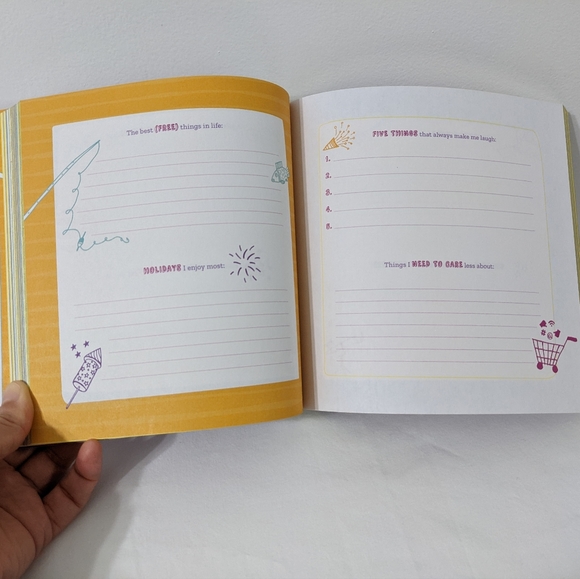 The best (FREE) things in life:
HOLIDAYS I enjoy most:
FIVE THINGS that always make me laugh:
1.
2.
3.
4.
5.
Things I NEED TO CARE less about: